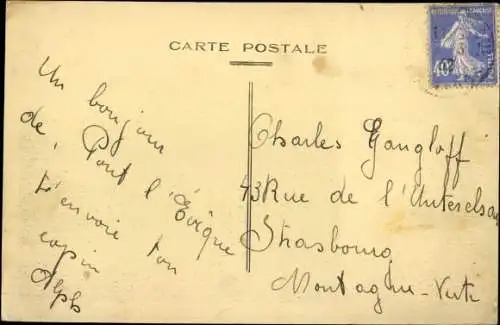 CARTE POSTALE
Un bonjour
de Pont l'Évêque
t'envoie ton
copin
Alph
Charles Gangloff
43 Rue de l'Unterelsau
Strasbourg
Montagne-Verte
40c